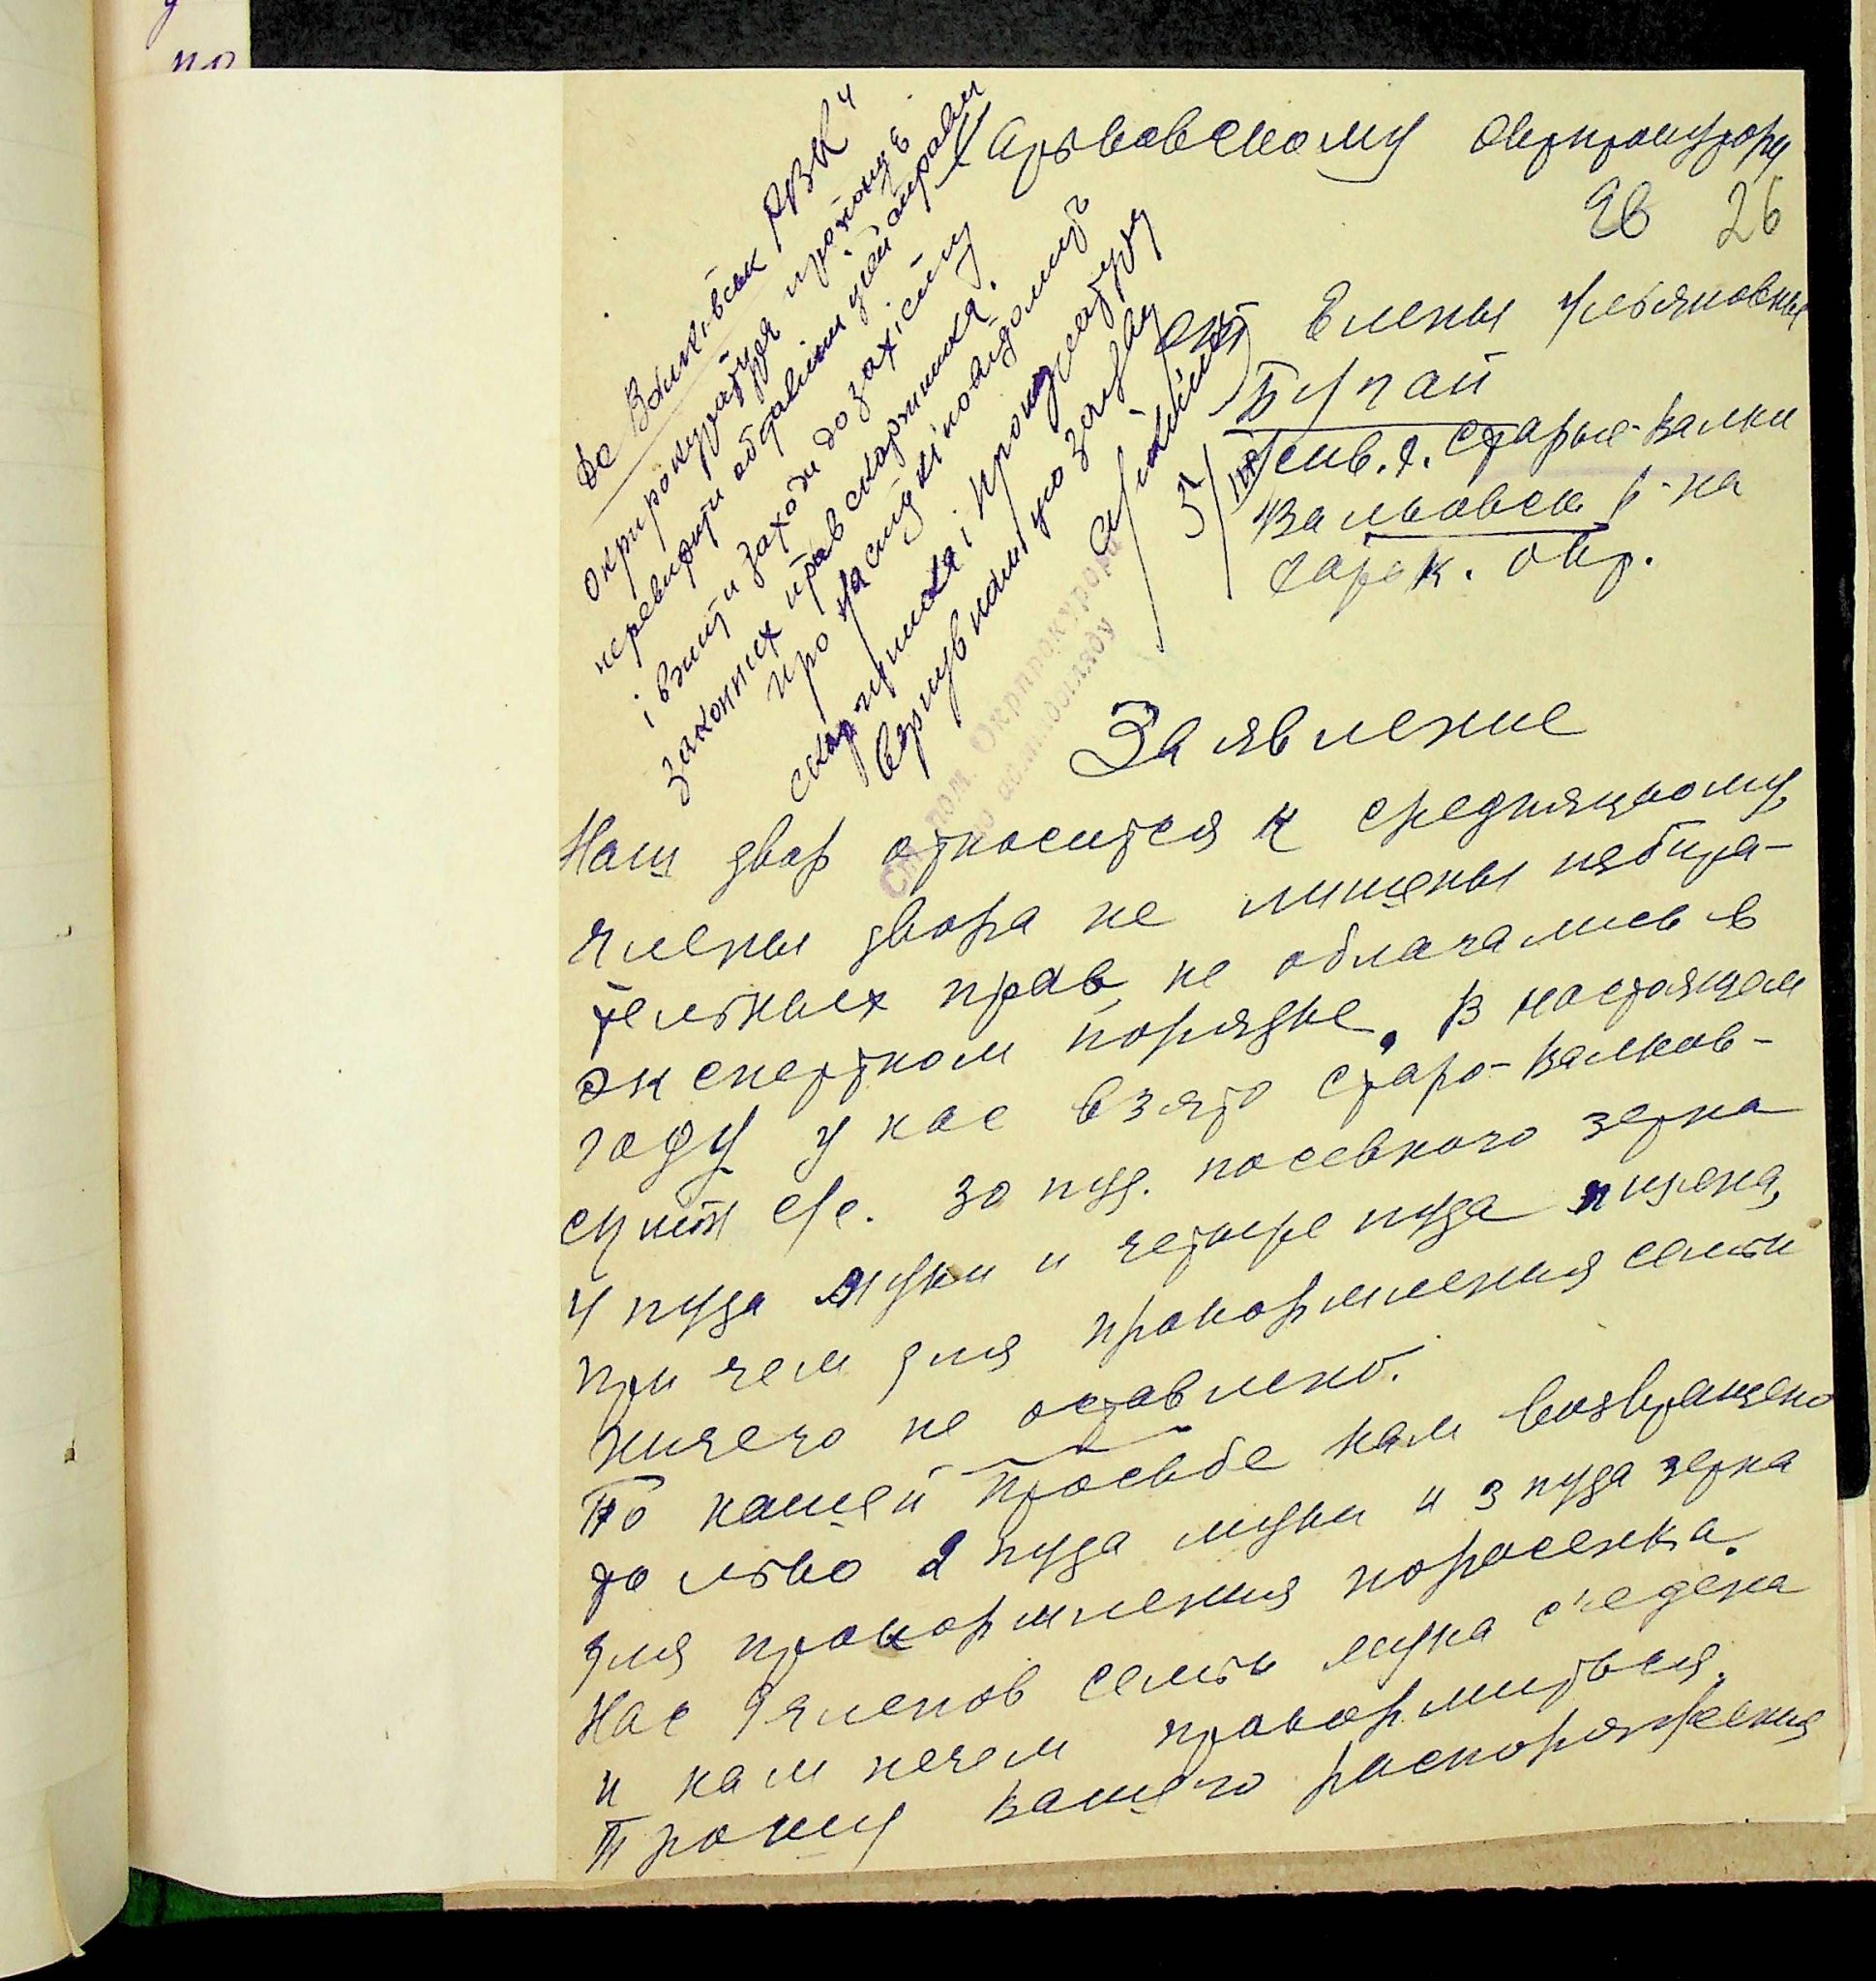 Харьковскому Окрпрокурору
26 26
от Елены Ульяновны
Бугай
жив. в. Старые-Валки
Валковск. р-на
Харьк. окр.
До Валківськ РВК
Окрпрокуратура пропонує
перевірити обставини цієї справи
і вжити заходи до захисту
законних прав скаржника.
Про наслідки повідомить
скаржника і прокуратуру
вернув нам цю заяву
5/III
Ст. пом. Окрпрокурора
Заявление
Наш двор относится к средняцкому,
члены двора не лишены избира-
тельных прав, не облагались в
экспертном порядке. В настоящем
году у нас взято Старо-Валков-
ским с/с. 30 пуд. посевного зерна
4 пуда муки и четыре пуда пшена,
при чем для прокормления семьи
ничего не оставлено.
По нашей просьбе нам возвращено
только 2 пуда муки и 3 пуда зерна
для прокормления поросенка.
Нас 9 членов семьи мука с'едена
и нам нечем прокормиться.
Прошу Вашего распоряжения